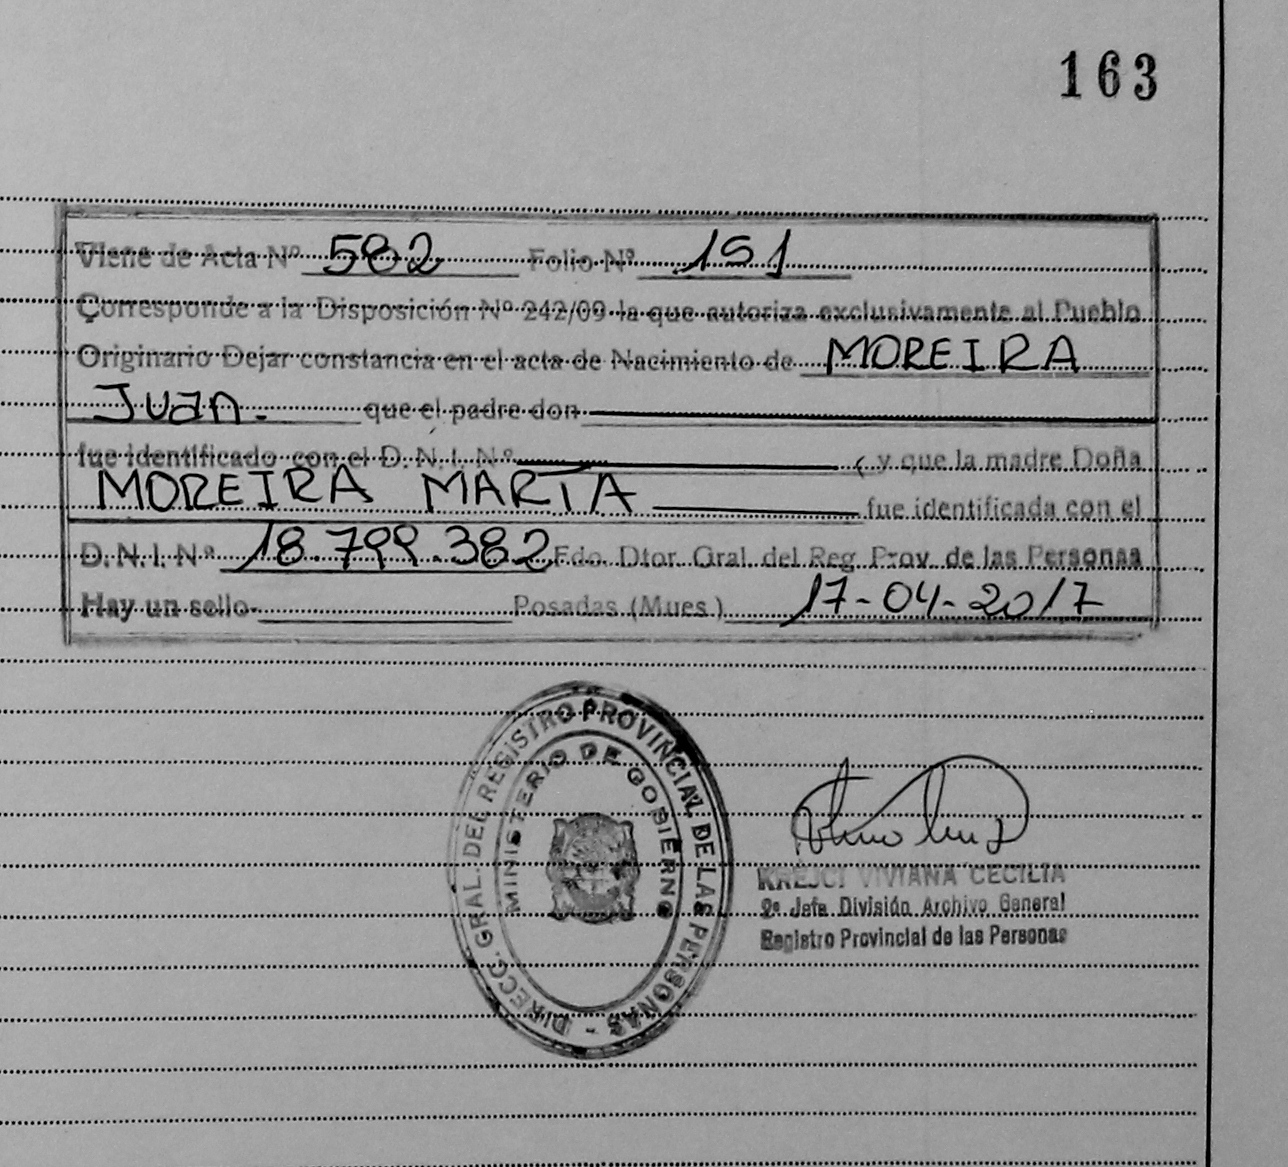 163
Viene de Acta Nº 582 Folio Nº 151
Corresponde a la Disposición Nº 242/09 la que autoriza exclusivamente al Pueblo
Originario Dejar constancia en el acta de Nacimiento de MOREIRA
Juan. que el padre don
fue identificado con el D. N. I. Nº y que la madre Doña
MOREIRA MARTA fue identificada con el
D. N. I. Nº 18.799.382 Fdo. Dtor. Gral. del Reg. Prov. de las Personas
Hay un sello- Posadas (Mnes.) 17-04-2017
DIRECC. GRAL. DEL REGISTRO PROVINCIAL DE LAS PERSONAS -
MINISTERIO DE GOBIERNO
KREJCI VIVIANA CECILIA
2ª Jefa División Archivo General
Registro Provincial de las Personas